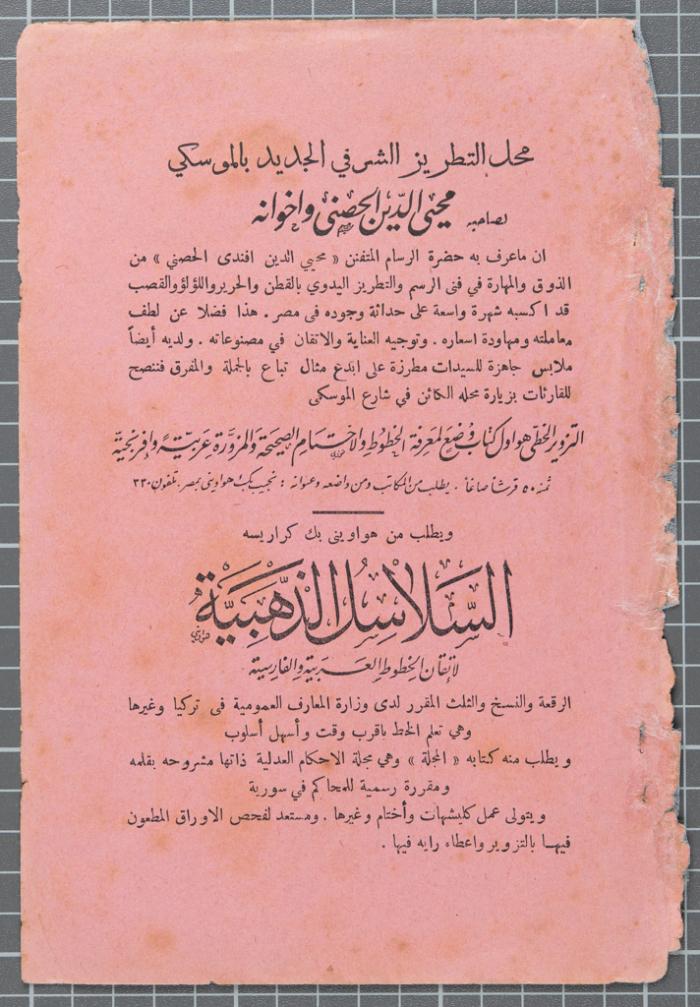 محل التطريز الشرفي الجديد بالموسكي
لصاحبه محيي الدين الحصني واخوانه
ان ماعرف به حضرة الرسام المتفنن « محيي الدين افندى الحصني » من
الذوق والمهارة في فنى الرسم والتطريز اليدوي بالقطن والحرير واللؤلؤ والقصب
قد اكسبه شهرة واسعة على حداثة وجوده فى مصر . هذا فضلا عن لطف
معاملته ومهاودة اسعاره . وتوجيه العناية والاتقان في مصنوعاته . ولديه أيضاً
ملابس جاهزة للسيدات مطرزة على ابدع مثال تباع بالجملة والمفرق فننصح
للقارئات بزيارة محله الكائن في شارع الموسكى
التزوير الخطي هو اول كتاب وضع لمعرفة الخطوط والاختام الصحيحة والمزورة عربية وإفرنجية
ثمنه ٥٠ قرشاً صاغاً . يطلب من المكاتب ومن واضعه وعنوانه : نجيب بك هواوينى بمصر . تلفون ٣٣٠
ويطلب من هواوينى بك كراريسه
السلاسل الذهبية
لاتقان الخطوط العربية والفارسية
الرقعة والنسخ والثلث المقرر لدى وزارة المعارف العمومية فى تركيا وغيرها
وهي تعلم الخط باقرب وقت وأسهل أسلوب
ويطلب منه كتابه « المجلة » وهي مجلة الاحكام العدلية ذاتها مشروحه بقلمه
ومقررة رسمية للمحاكم في سورية
ويتولى عمل كليشهات وأختام وغيرها . ومستعد لفحص الاوراق المطعون
فيها بالتزوير واعطاء رايه فيها .